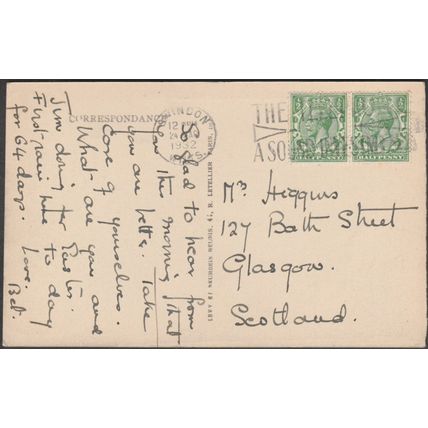 CORRESPONDANCE
So glad to hear from
you this morning that
you are better. Take
Care of yourselves.
What are you and
Jim doing for Easter.
First rain here to day
for 64 days. Love.
Bel.
SWINDON
12
24
1932
THE
A SO
HALFPENNY
HALFPENNY
LEVY ET NEURDEIN REUNIS, 44, R. LETELLIER PARIS.
Mrs Higgins
127 Bath Street
Glasgow.
Scotland.